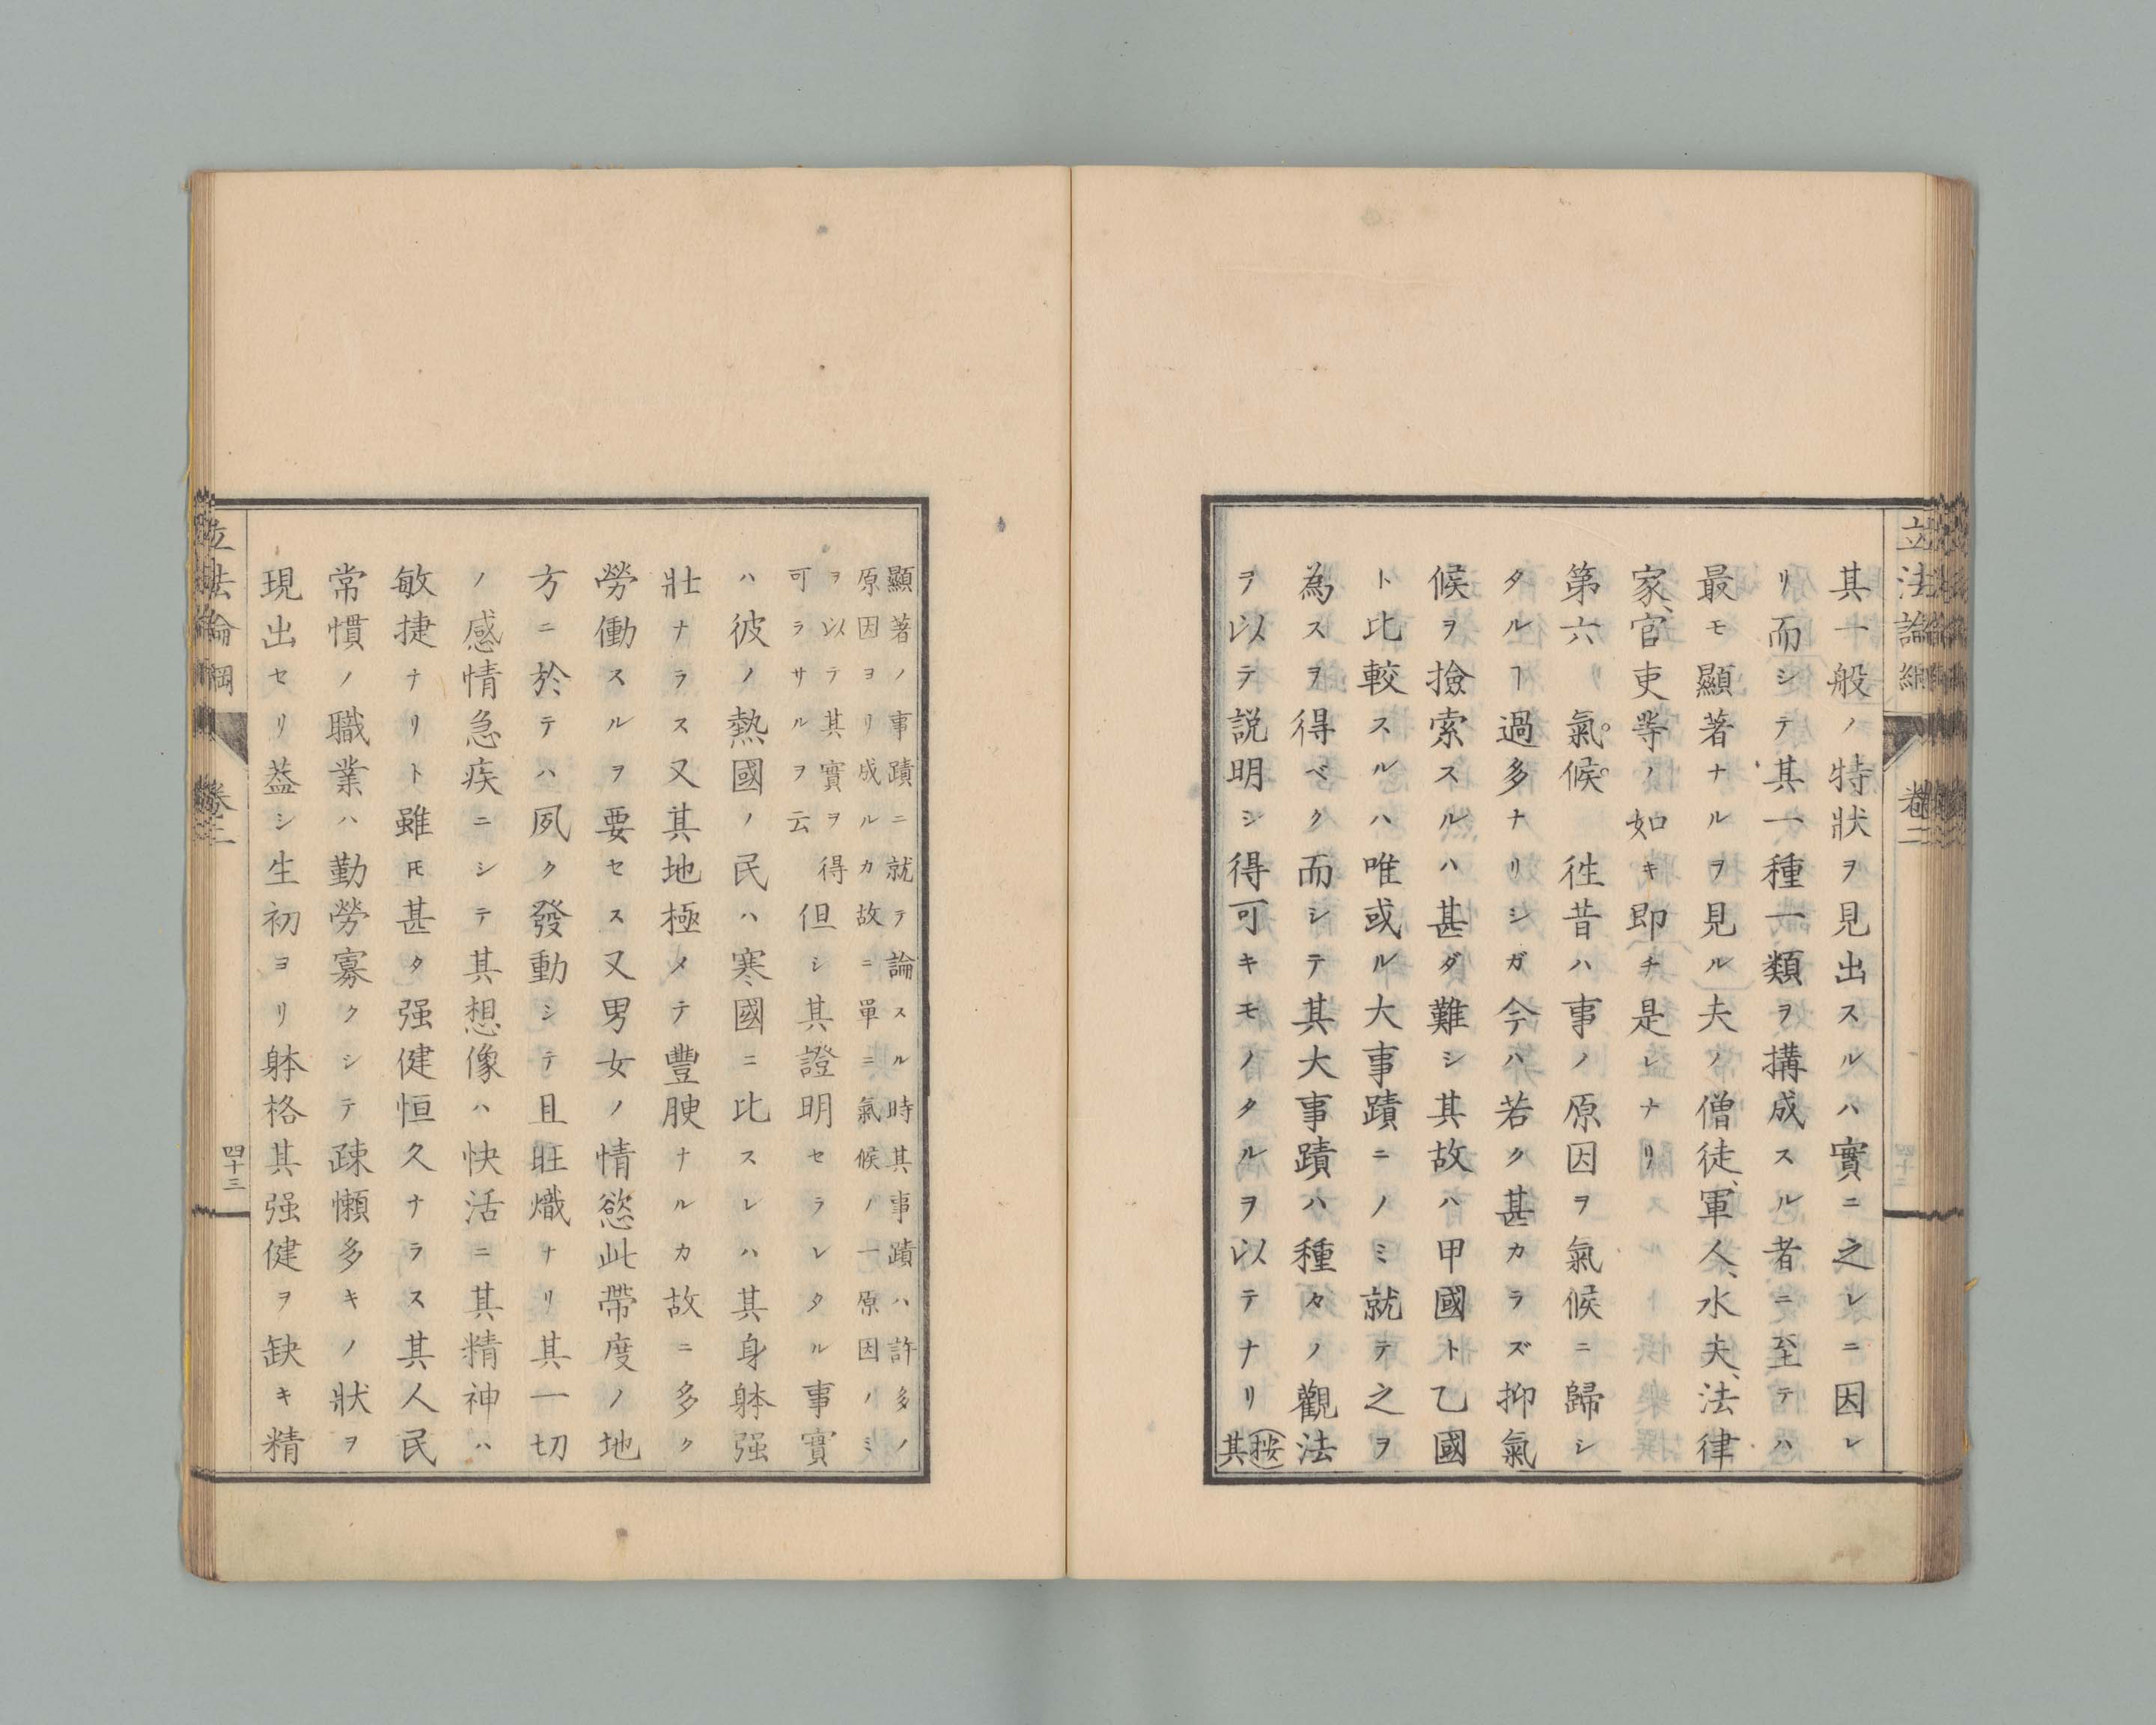 立法論綱
卷二
其一般ノ特狀ヲ見出スルハ實ニ之レニ因レ
リ而シテ其一種一類ヲ搆成スル者ニ至テハ
最モ顯著ナルヲ見ル夫ノ僧徒、軍人、水夫、法律
家、官吏等ノ如キ即チ是レナリ
第六　氣候　徃昔ハ事ノ原因ヲ氣候ニ歸シ
タルヿ過多ナリシガ今ハ若ク甚カラズ抑氣
候ヲ撿索スルハ甚ダ難シ其故ハ甲國ト乙國
ト比較スルハ唯或ル大事蹟ニノミ就テ之ヲ
為スヲ得ベク而シテ其大事蹟ハ種々ノ觀法
ヲ以テ説明シ得可キモノタルヲ以テナリ按其
顯著ノ事蹟ニ就テ論スル時其事蹟ハ許多ノ
原因ヨリ成ルカ故ニ單ニ氣候ノ一原因ノミ
ヲ以テ其實ヲ得
可ラサルヲ云
但シ其證明セラレタル事實
ハ彼ノ熱國ノ民ハ寒國ニ比スレハ其身躰强
壯ナラス又其地極メテ豐腴ナルカ故ニ多ク
勞働スルヲ要セス又男女ノ情慾此帶度ノ地
方ニ於テハ夙ク發動シテ且旺熾ナリ其一切
ノ感情急疾ニシテ其想像ハ快活ニ其精神ハ
敏捷ナリト雖𪜈甚タ强健恒久ナラス其人民
常慣ノ職業ハ勤勞寡クシテ疎懶多キノ狀ヲ
現出セリ葢シ生初ヨリ躰格其强健ヲ缺キ精
立法論綱
卷二
四十三